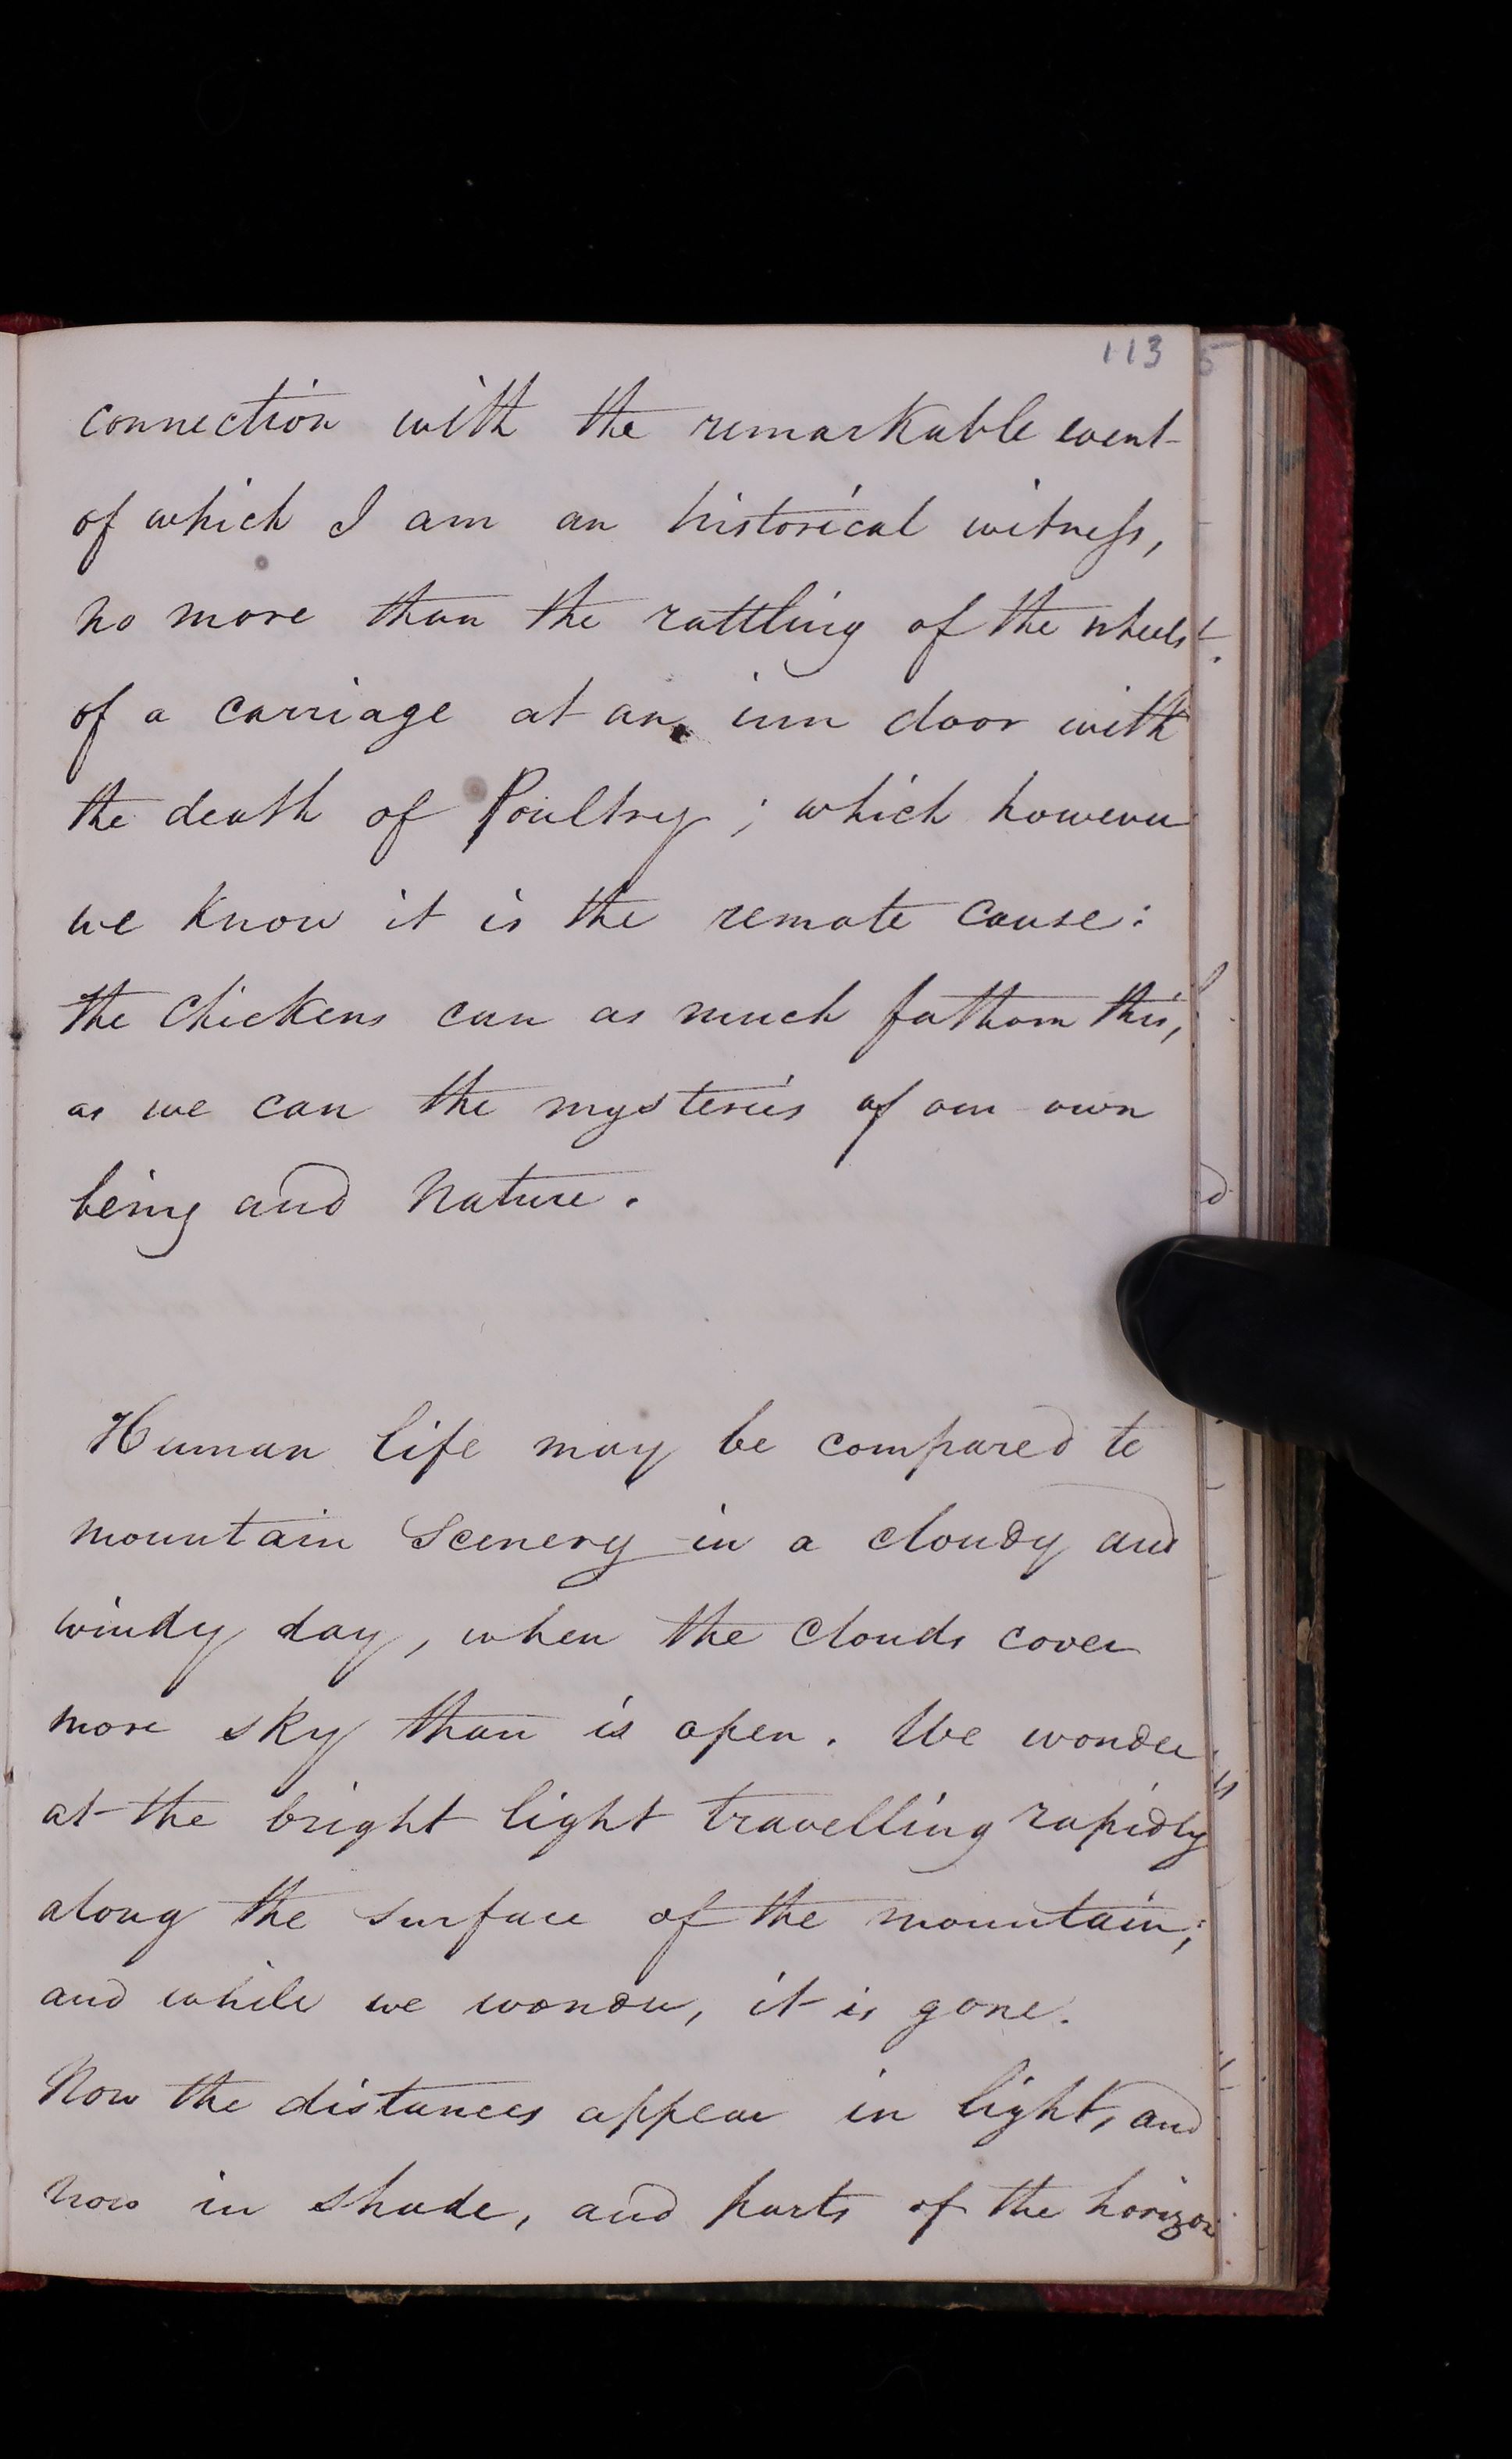 113
connection with the remarkable event
of which I am an historical witneſs,
no more than the rattling of the wheels
of a carriage at an inn door with
the death of Poultry; which however
we know it is the remote cause:
the chickens can as much fathom this,
as we can the mysteries of our own
being and Nature.
Human life may be compared to
mountain Scenery in a cloudy and
windy day, when the clouds cover
more sky than is open. We wonder
at the bright light travelling rapidly
along the surface of the mountain;
and while we wonder, it is gone.
Now the distances appear in light, and
now in shade, and parts of the horizon